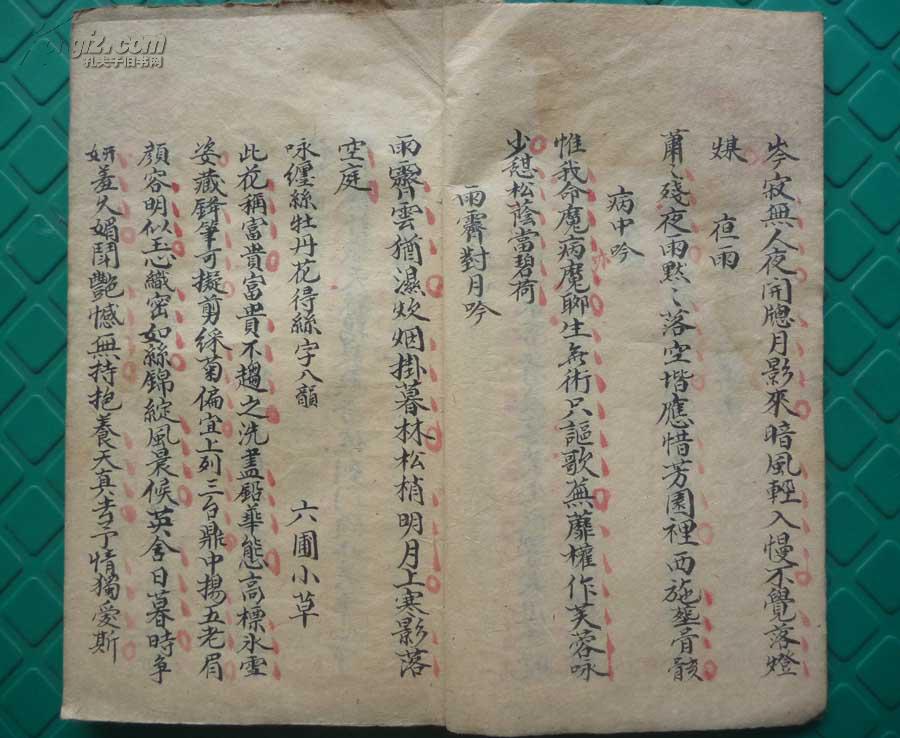 岑寂無人夜開牕月影來暗風輕入慢不覺落燈
煤　夜雨
蕭〻殘夜雨默〻落空堦應惜芳園裡西施塟骨骸
病中吟
惟我命魔病魔聊生無術只謳歌蕪蘼權作芙蓉咏
少憩松蔭當碧荷
雨霽對月吟
雨霽雲猶濕炊烟掛暮林松梢明月上寒影落
空庭
咏纏絲牡丹花得絲字八韻　六圃小草
此花稱富貴富貴不趨之洗盡鉛華態高標氷雪
姿藏鋒筆可擬剪綵菊偏宜上列三台鼎中揚五老眉
顏容明似玉心織密如絲錦綻風晨候英含日暮時爭
妍羞久媚鬪艷憾無持抱養天真吉予情獨愛斯
kongfz.com
孔夫子旧书网